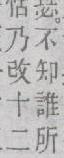 瑟。不知誰所
恬乃改十二